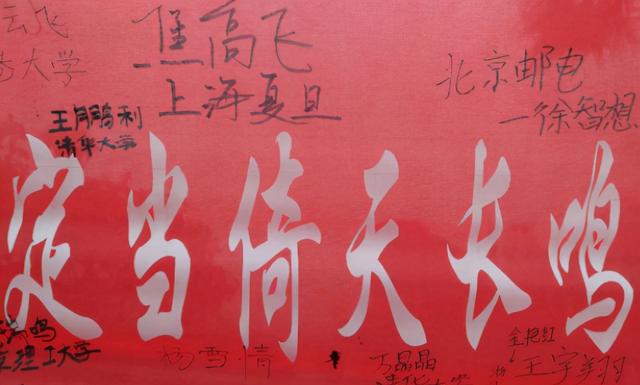 云飞
大学
焦高飞
上海夏旦
北京邮电
—徐智想
王鹏利
清华大学
定当倚天长鸣
鸣
理工大学
杨雪情
万晶晶
清华大学
金艳红
王宇翔
浙